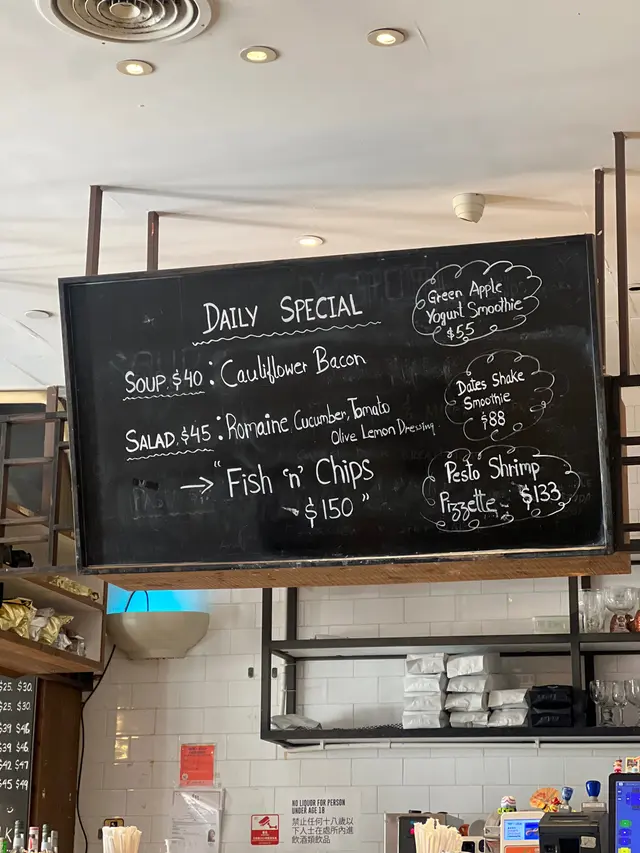 DAILY SPECIAL
SOUP $40 : Cauliflower Bacon
SALAD $45 : Romaine, Cucumber, Tomato
Olive Lemon Dressing
→ "Fish 'n' Chips
$150"
Green Apple
Yogurt Smoothie
$55
Dates Shake
Smoothie
$88
Pesto Shrimp
Pizzette - $133
$25. $30.
$25. $30.
$39 $46
$39 $46
$42 $47
$45 $49
NO LIQUOR FOR PERSON
UNDER AGE 18
禁止任何十八歲以
下人士在處所內進
飲酒類飲品